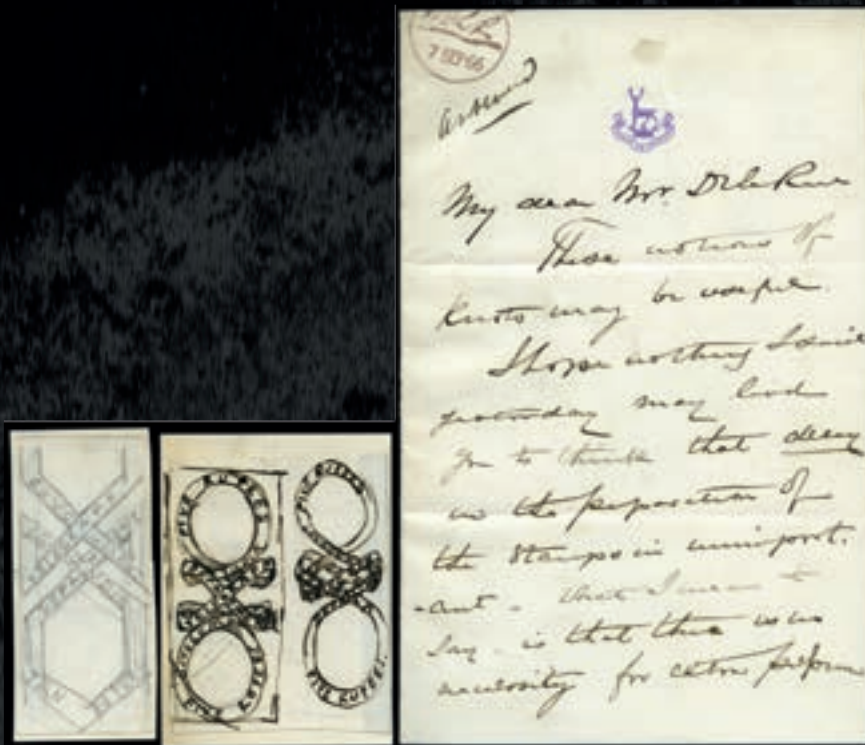 7 SEP 66
answered
My dear Mr. De la Rue
These notions of
Knots may be useful.
I hope nothing I said
yesterday may lead
you to think that delay
in the preparation of
the stamps is unimport-
-ant - what I mean to
say - is that there is no
necessity for extra
FIVE RUPEES
FIVE RUPEES
FIVE RUPEES
FIVE RUPEES